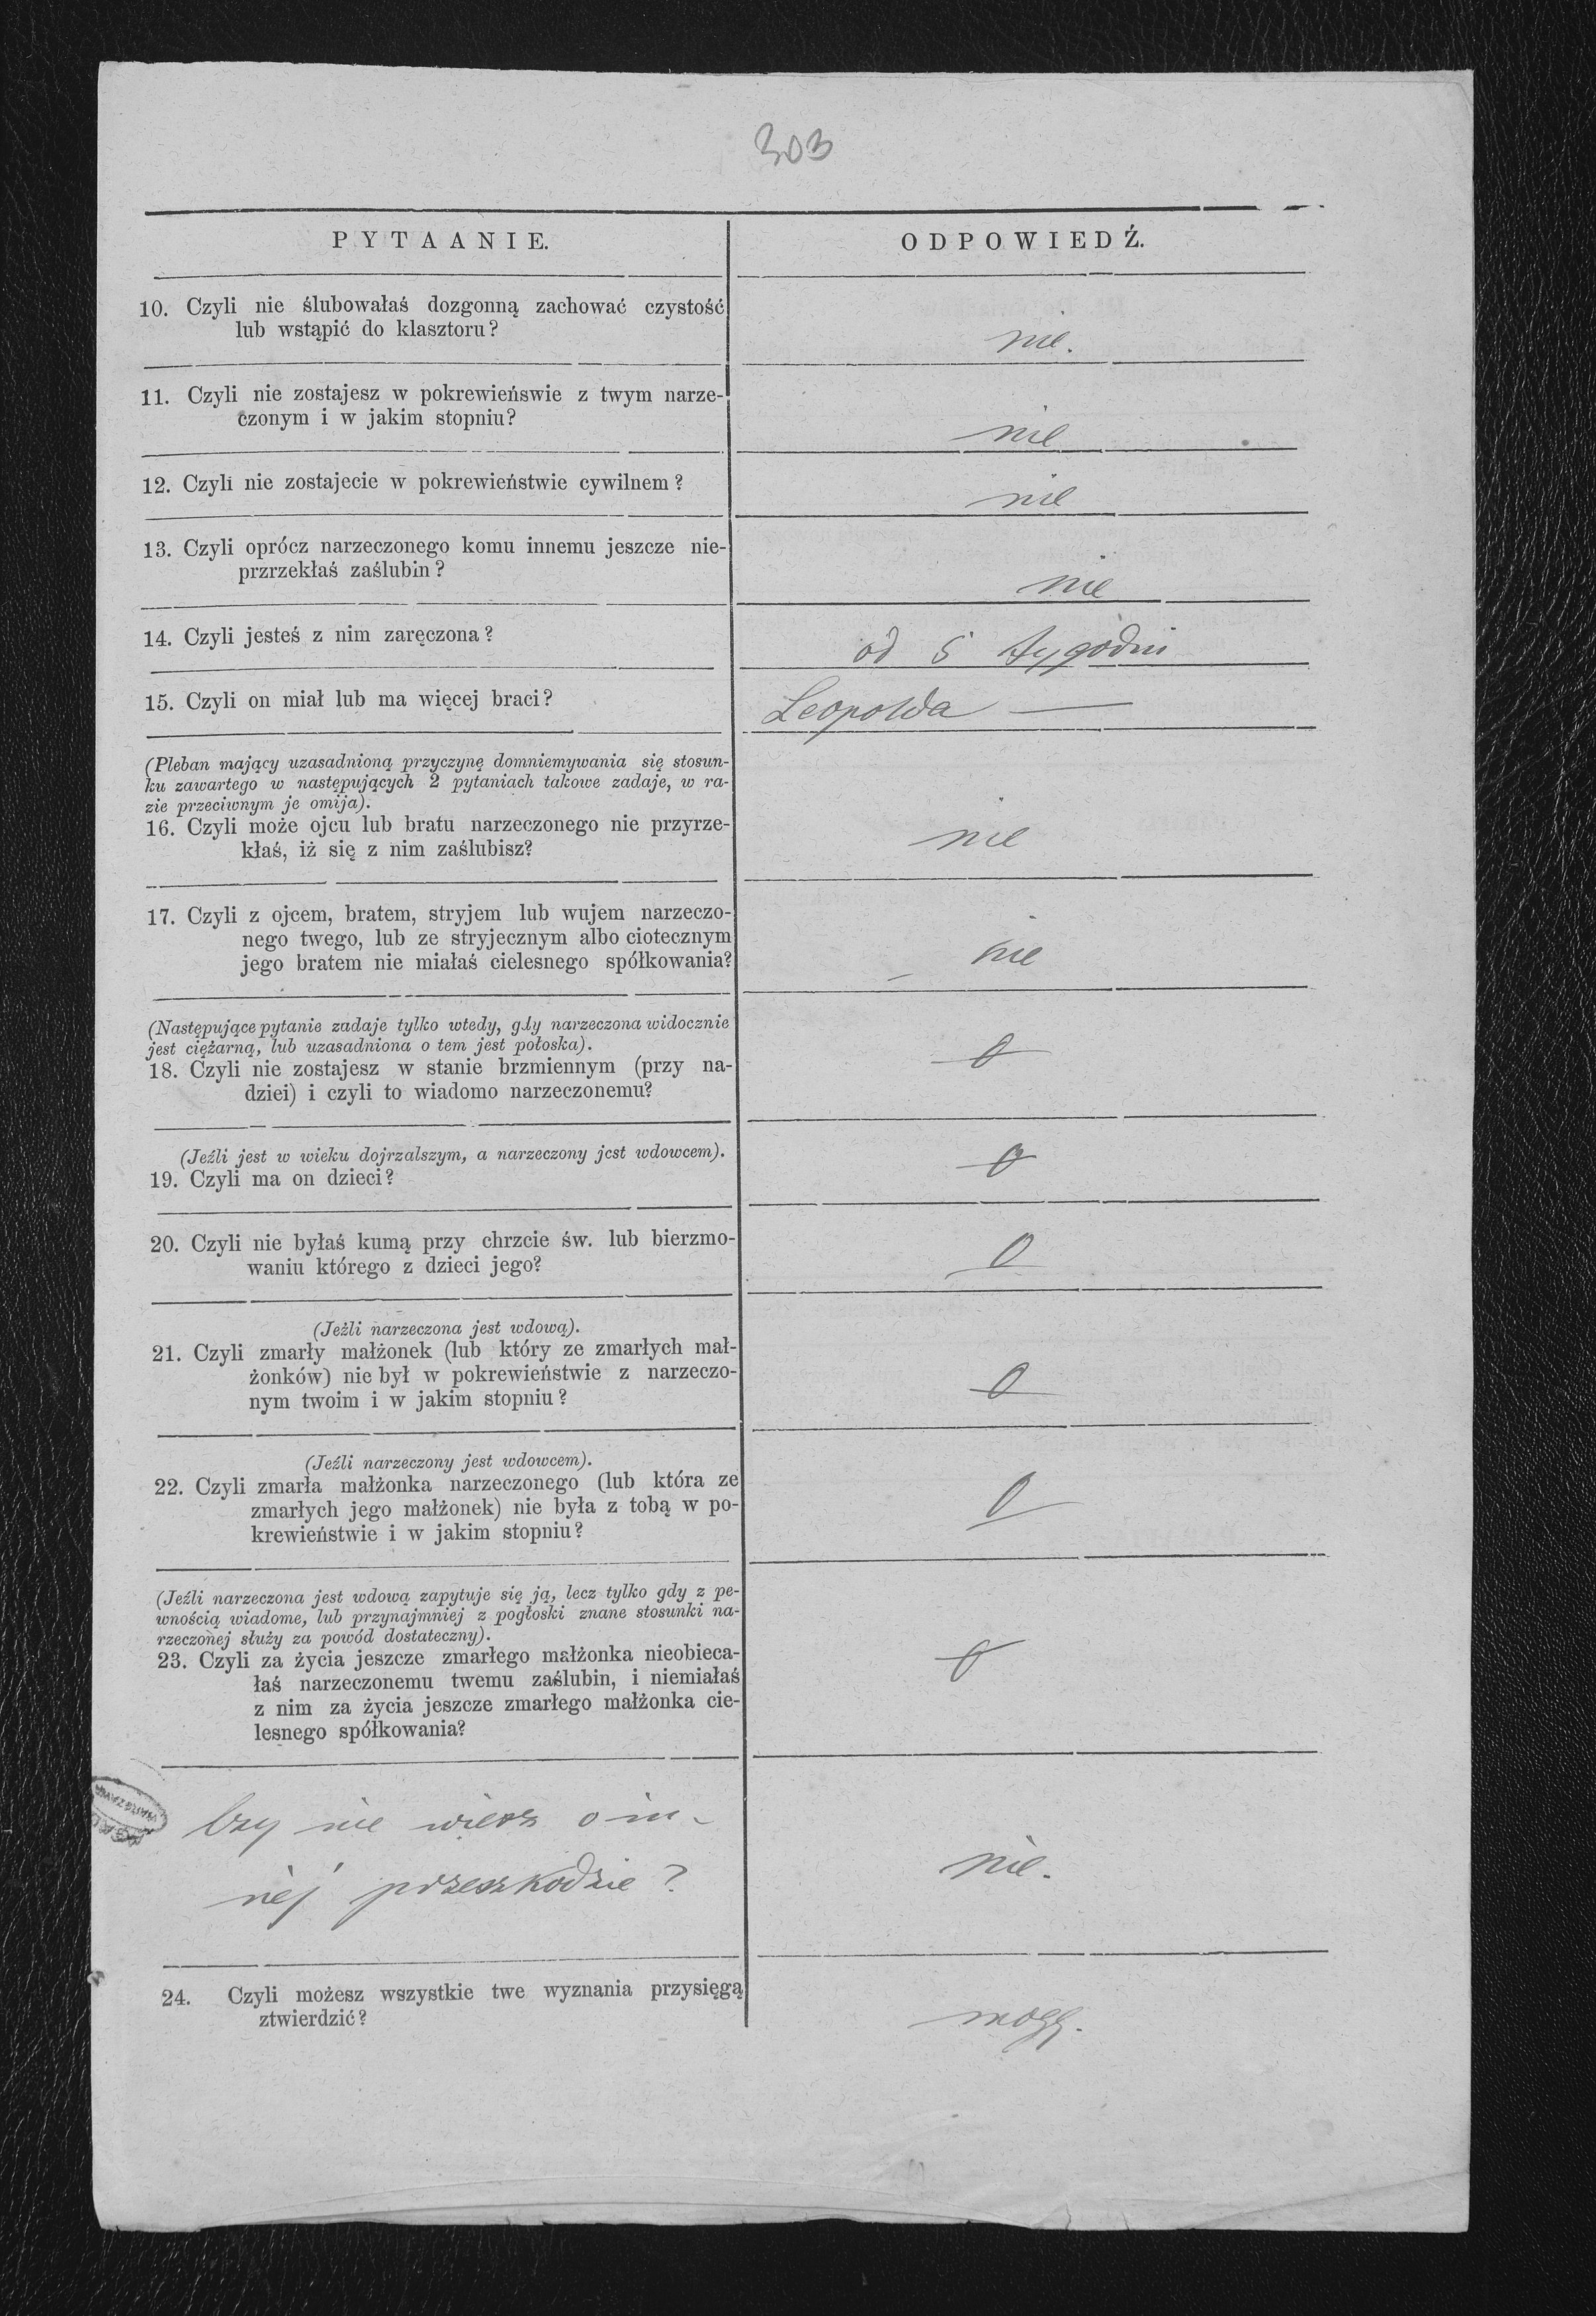 303
PYTAANIE.
ODPOWIEDŹ.
10. Czyli nie ślubowałaś dozgonną zachować czystość
lub wstąpić do klasztoru?
nie.
11. Czyli nie zostajesz w pokrewieńswie z twym narze-
czonym i w jakim stopniu?
nie
12. Czyli nie zostajecie w pokrewieństwie cywilnem?
nie
13. Czyli oprócz narzeczonego komu innemu jeszcze nie-
przrzekłaś zaślubin?
nie
14. Czyli jesteś z nim zaręczona?
od 5 tygodni
15. Czyli on miał lub ma więcej braci?
Leopolda —
(Pleban mający uzasadnioną przyczynę domniemywania się stosun-
ku zawartego w następujących 2 pytaniach takowe zadaje, w ra-
zie przeciwnym je omija).
16. Czyli może ojcu lub bratu narzeczonego nie przyrze-
kłaś, iż się z nim zaślubisz?
nie
17. Czyli z ojcem, bratem, stryjem lub wujem narzeczo-
nego twego, lub ze stryjecznym albo ciotecznym
jego bratem nie miałaś cielesnego spółkowania?
nie
(Następujące pytanie zadaje tylko wtedy, gdy narzeczona widocznie
jest ciężarną, lub uzasadniona o tem jest połoska).
18. Czyli nie zostajesz w stanie brzmiennym (przy na-
dziei) i czyli to wiadomo narzeczonemu?
0
(Jeźli jest w wieku dojrzalszym, a narzeczony jest wdowcem).
19. Czyli ma on dzieci?
0
20. Czyli nie byłaś kumą przy chrzcie św. lub bierzmo-
waniu którego z dzieci jego?
0
(Jeźli narzeczona jest wdową).
21. Czyli zmarły małżonek (lub który ze zmarłych mał-
żonków) nie był w pokrewieństwie z narzeczo-
nym twoim i w jakim stopniu?
0
(Jeźli narzeczony jest wdowcem).
22. Czyli zmarła małżonka narzeczonego (lub która ze
zmarłych jego małżonek) nie była z tobą w po-
krewieństwie i w jakim stopniu?
0
(Jeźli narzeczona jest wdową zapytuje się ją, lecz tylko gdy z pe-
wnością wiadome, lub przynajmniej z pogłoski znane stosunki na-
rzeczonej służy za powód dostateczny).
23. Czyli za życia jeszcze zmarłego małżonka nieobieca-
łaś narzeczonemu twemu zaślubin, i niemiałaś
z nim za życia jeszcze zmarłego małżonka cie-
lesnego spółkowania?
0
Czy nie wiesz o in-
nej przeszkodzie?
nie.
24. Czyli możesz wszystkie twe wyznania przysięgą
ztwierdzić?
mogę.